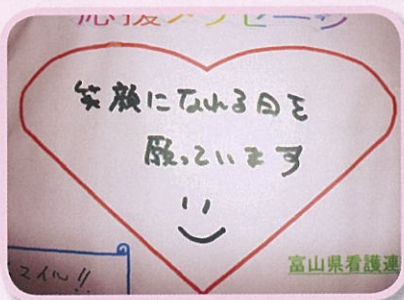 応援メッセージ
笑顔になれる日を
願っています
スマイル!!
富山県看護連